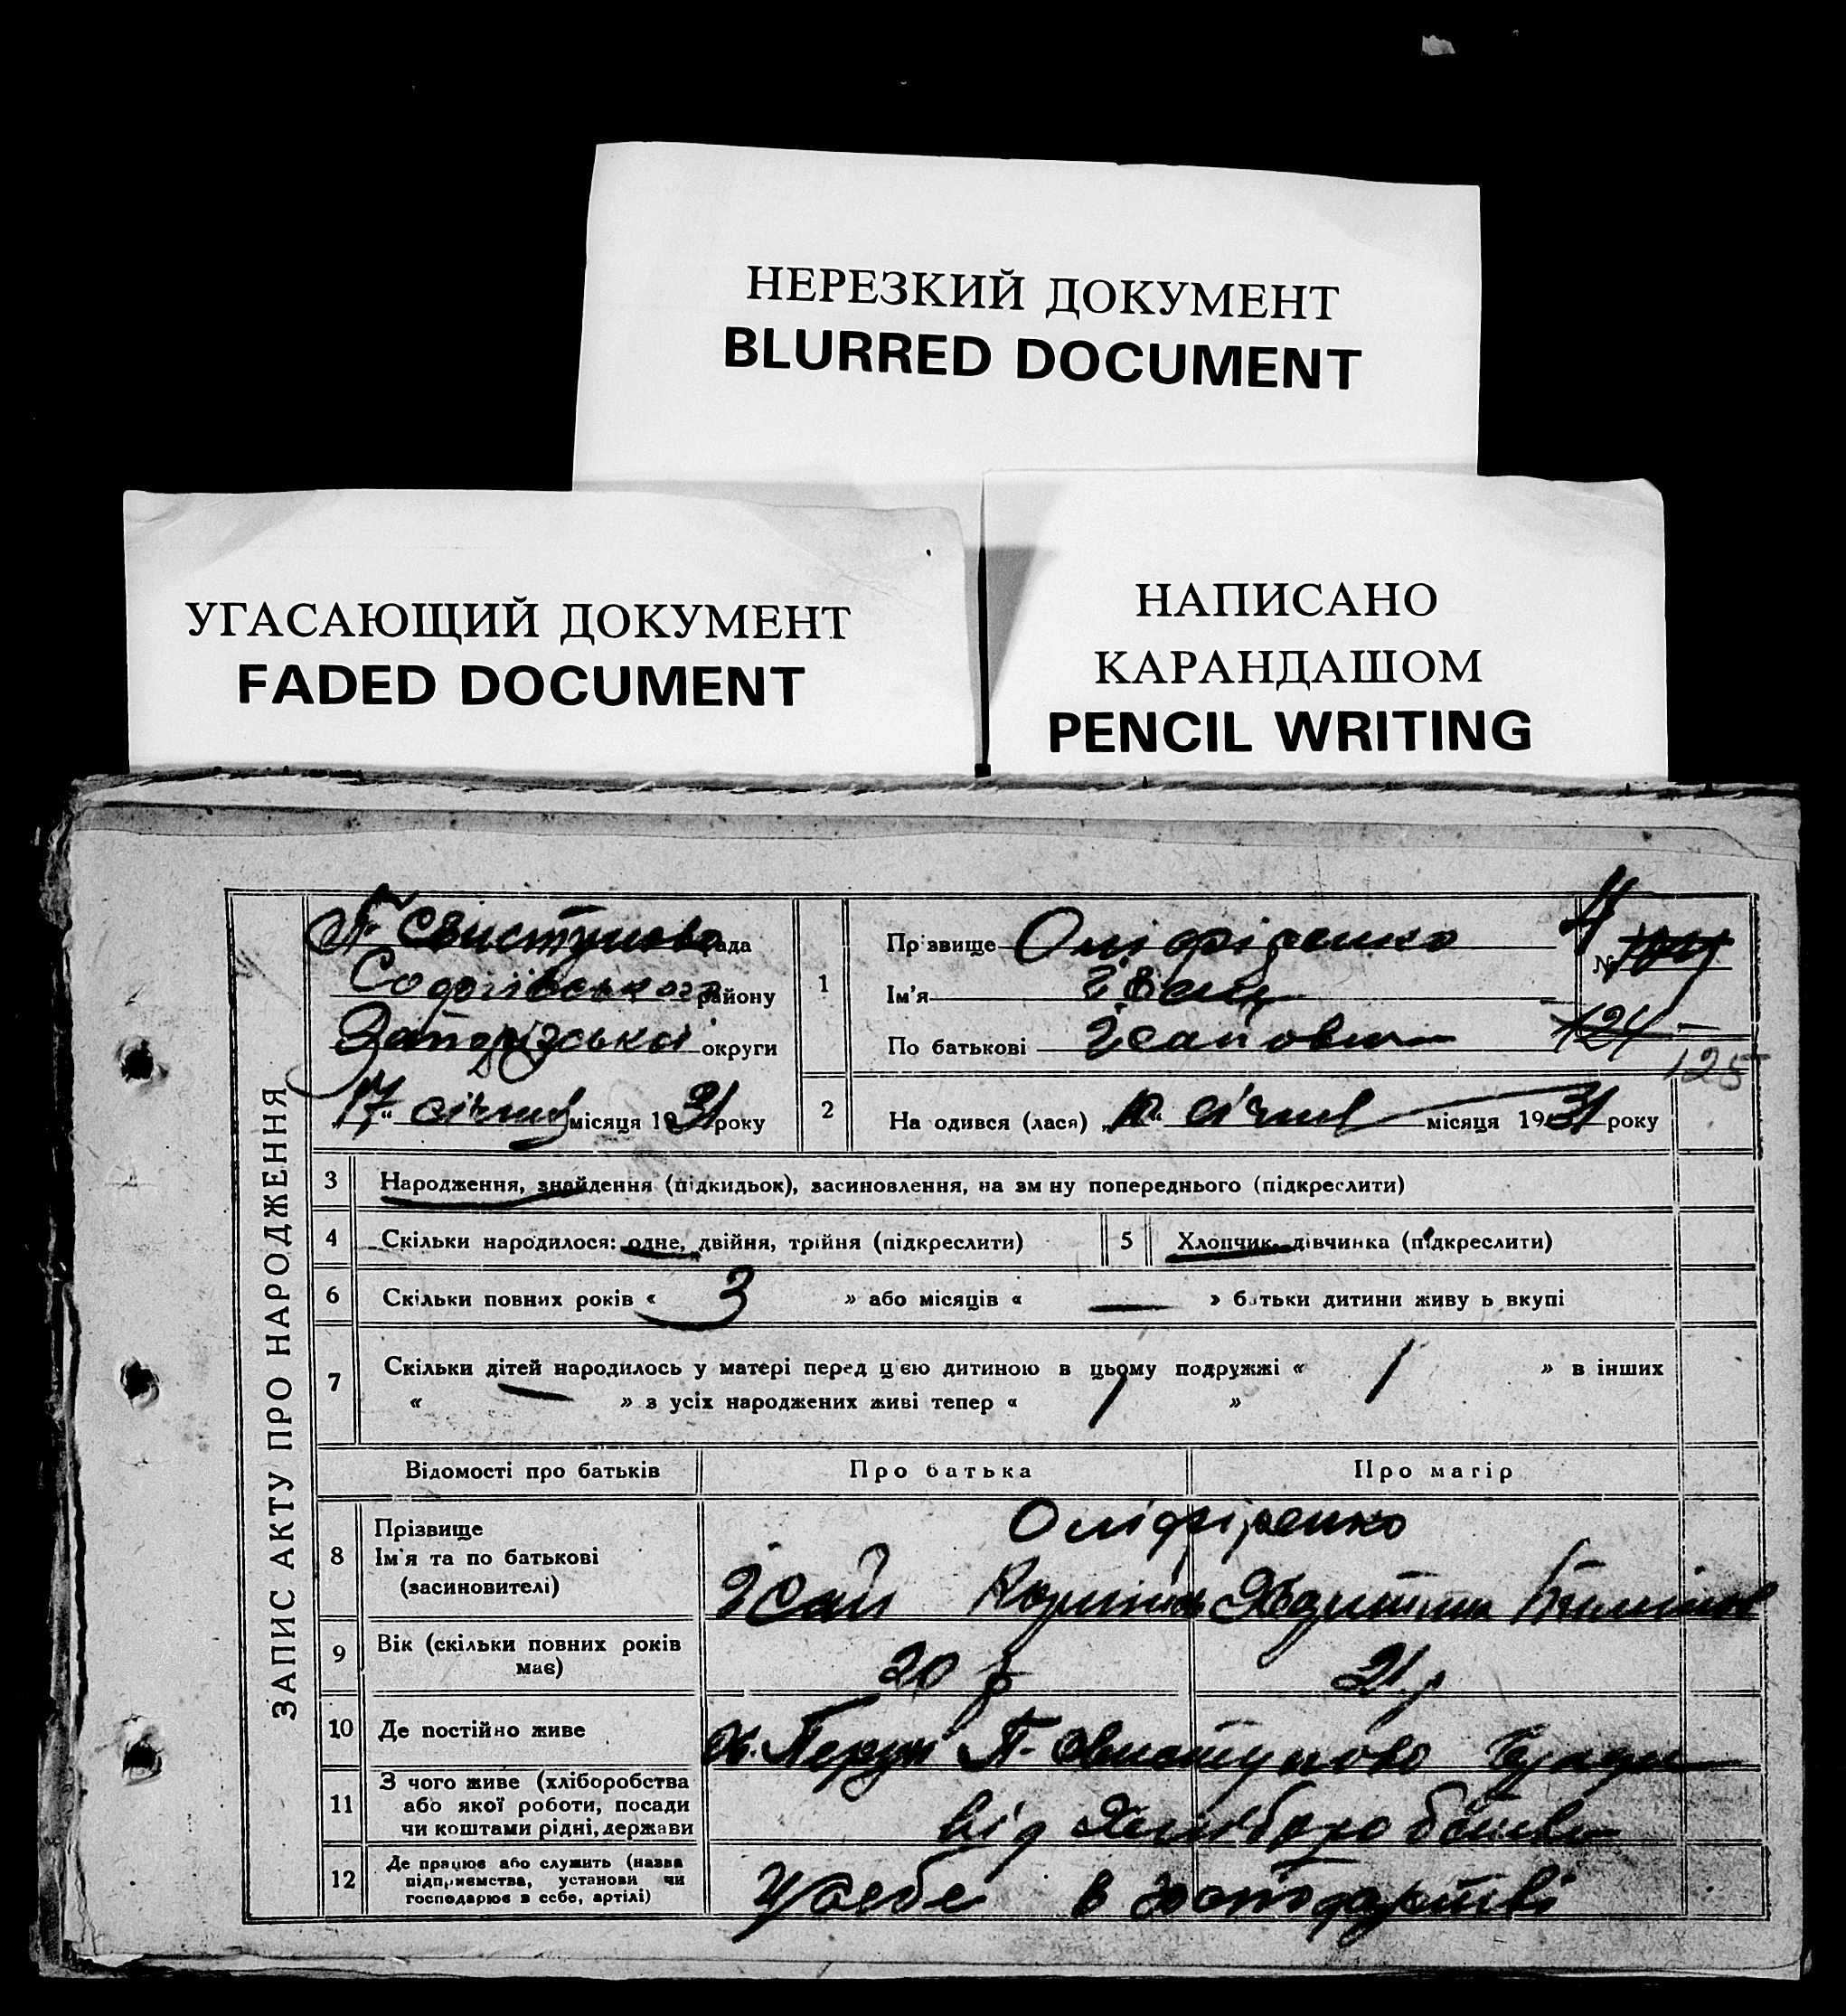 НЕРЕЗКИЙ ДОКУМЕНТ
BLURRED DOCUMENT
УГАСАЮЩИЙ ДОКУМЕНТ
FADED DOCUMENT
НАПИСАНО
КАРАНДАШОМ
PENCIL WRITING
ЗАПИС АКТУ ПРО НАРОДЖЕННЯ
П. Свистуново рада
Софіївського району
Запорізської округи
„17“ січня місяця 1931 року
1
Прізвище Оліфіренко
Ім'я Іван
По батькові Ісайович
4
№
124
125
2 На одився (лася) „10“ січня місяця 1931 року
3 Народження, знайдення (підкидьок), засиновлення, на зм ну попереднього (підкреслити)
4 Скільки народилося: одне, двійня, трійня (підкреслити)
5 Хлопчик, дівчинка (підкреслити)
6 Скільки повних років « 3 » або місяців « — » батьки дитини живу ь вкупі
7 Скільки дітей народилось у матері перед цією дитиною в цьому подружжі « 1 » в інших
« — » з усіх народжених живі тепер « 1 »
Відомості про батьків Про батька Про матір
8 Прізвище
Ім'я та по батькові
(засиновителі)
Оліфіренко
Ісай
9 Вік (скільки повних років
має)
20 р 21 р
10 Де постійно живе
х. П. Свистуново
11 З чого живе (хліборобства
або якої роботи, посади
чи коштами рідні, держави
від Хліборобства
12 Де працює або служить (назва
підприємства, установи чи
господарює в себе, артілі)
У себе в господарстві